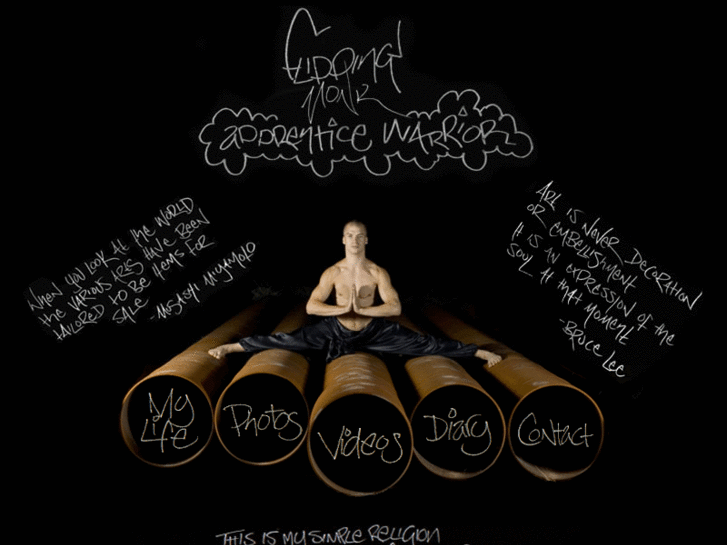 FLIPPING
MONK
apprentice WARRIOR
When you look at the WORLD
the various arts have been
tailored to be items for
sale
-Musashi Miyamoto
Art is never decoration
or embellishment
It is an expression of the
soul at that moment
-Bruce Lee
My
Life
Photos
Videos
Diary
Contact
THIS IS MY SIMPLE RELIGION